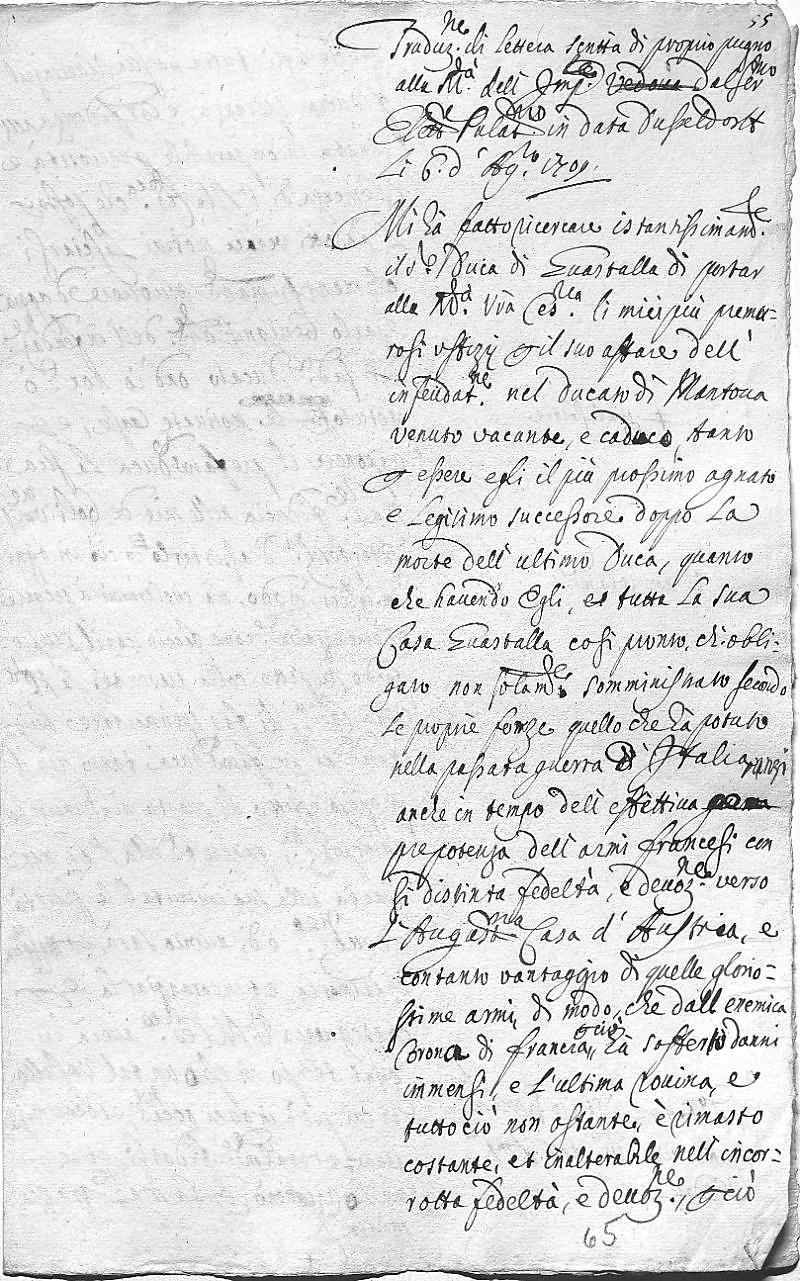 55
Traduz.ne di lettera scritta di proprio pugno
alla M.tà dell' Imp.e Vedova dal Ser.mo
Elett.e Palat.no in data Dusseldorff
Li 6. d' Ag.to 1709.
Mi hà fatto ricercare istantissimam.te
il s.r Duca di Guastalla di portar
alla M.tà Vrã Ces.rea li miei più premu-
rosi uffizij p il suo affare dell'
infeudat.ne nel Ducato di Mantova
venuto vacante, e caduco, tanto
p essere egli il più prossimo agnato
e Legitimo successore doppo La
morte dell' ultimo Duca, quanto
che havendo Egli, et tutta La sua
Casa Guastalla così pronto, ch' obli-
gato non solam.te somministrato secondo
Le proprie forze quello che hà potuto
nella passata guerra d' Italia, anzi
anche in tempo dell' effettiva
prepotenza dell' armi francesi con
sì distinta fedeltà, e devoz.ne verso
L' August.ma Casa d' Austria, e
con tanto vantaggio di quelle glorio-
sime armi, di modo, che dall' enemica
Corona di francia, p ciò hà sofferto danni
immensi, e L' ultima rovina, e
tutto ciò non ostante, è rimasto
costante, et inalterabile nell' incor-
rotta fedeltà, e devoz.ne, p ciò
65